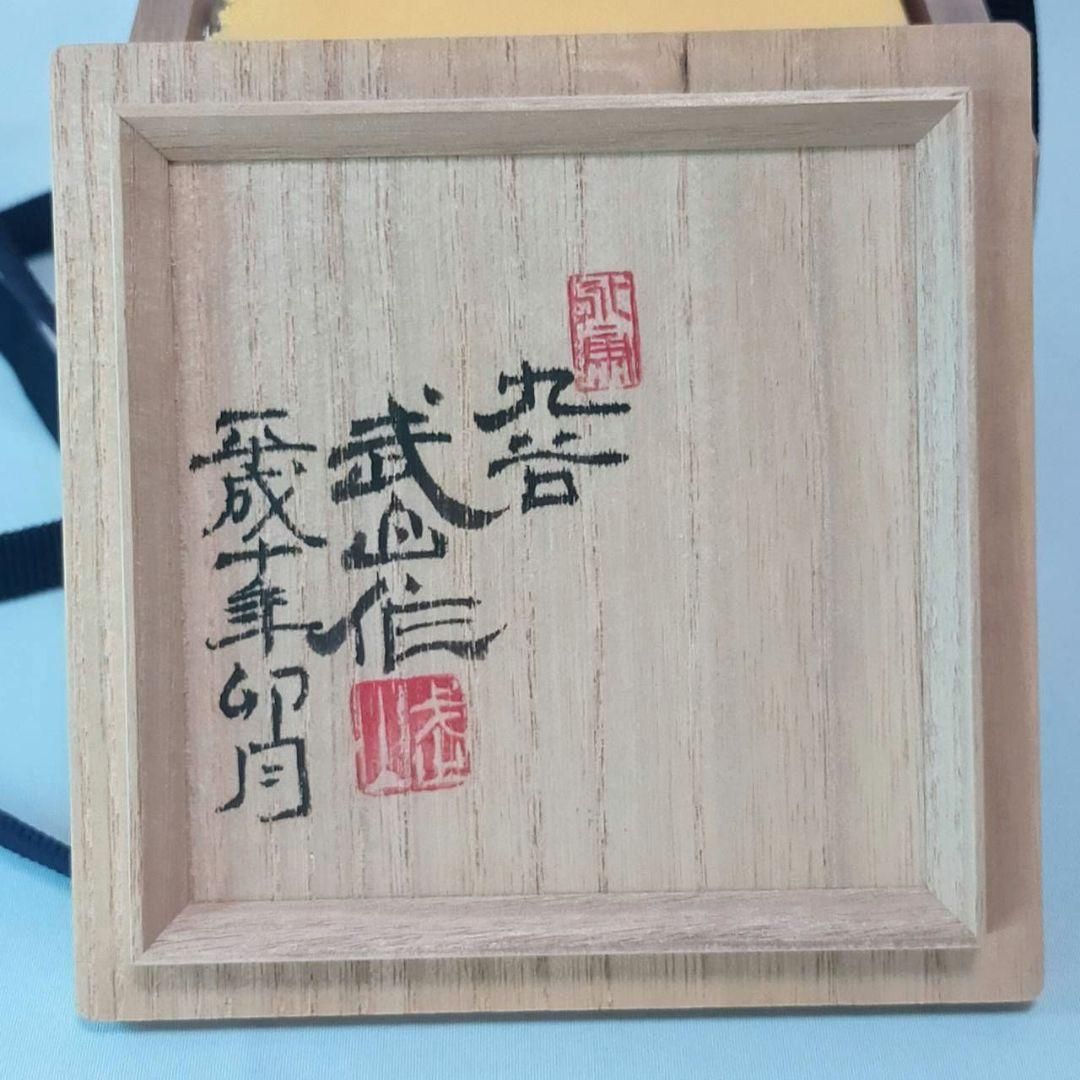 九谷
武山作
平成十年卯月
武山